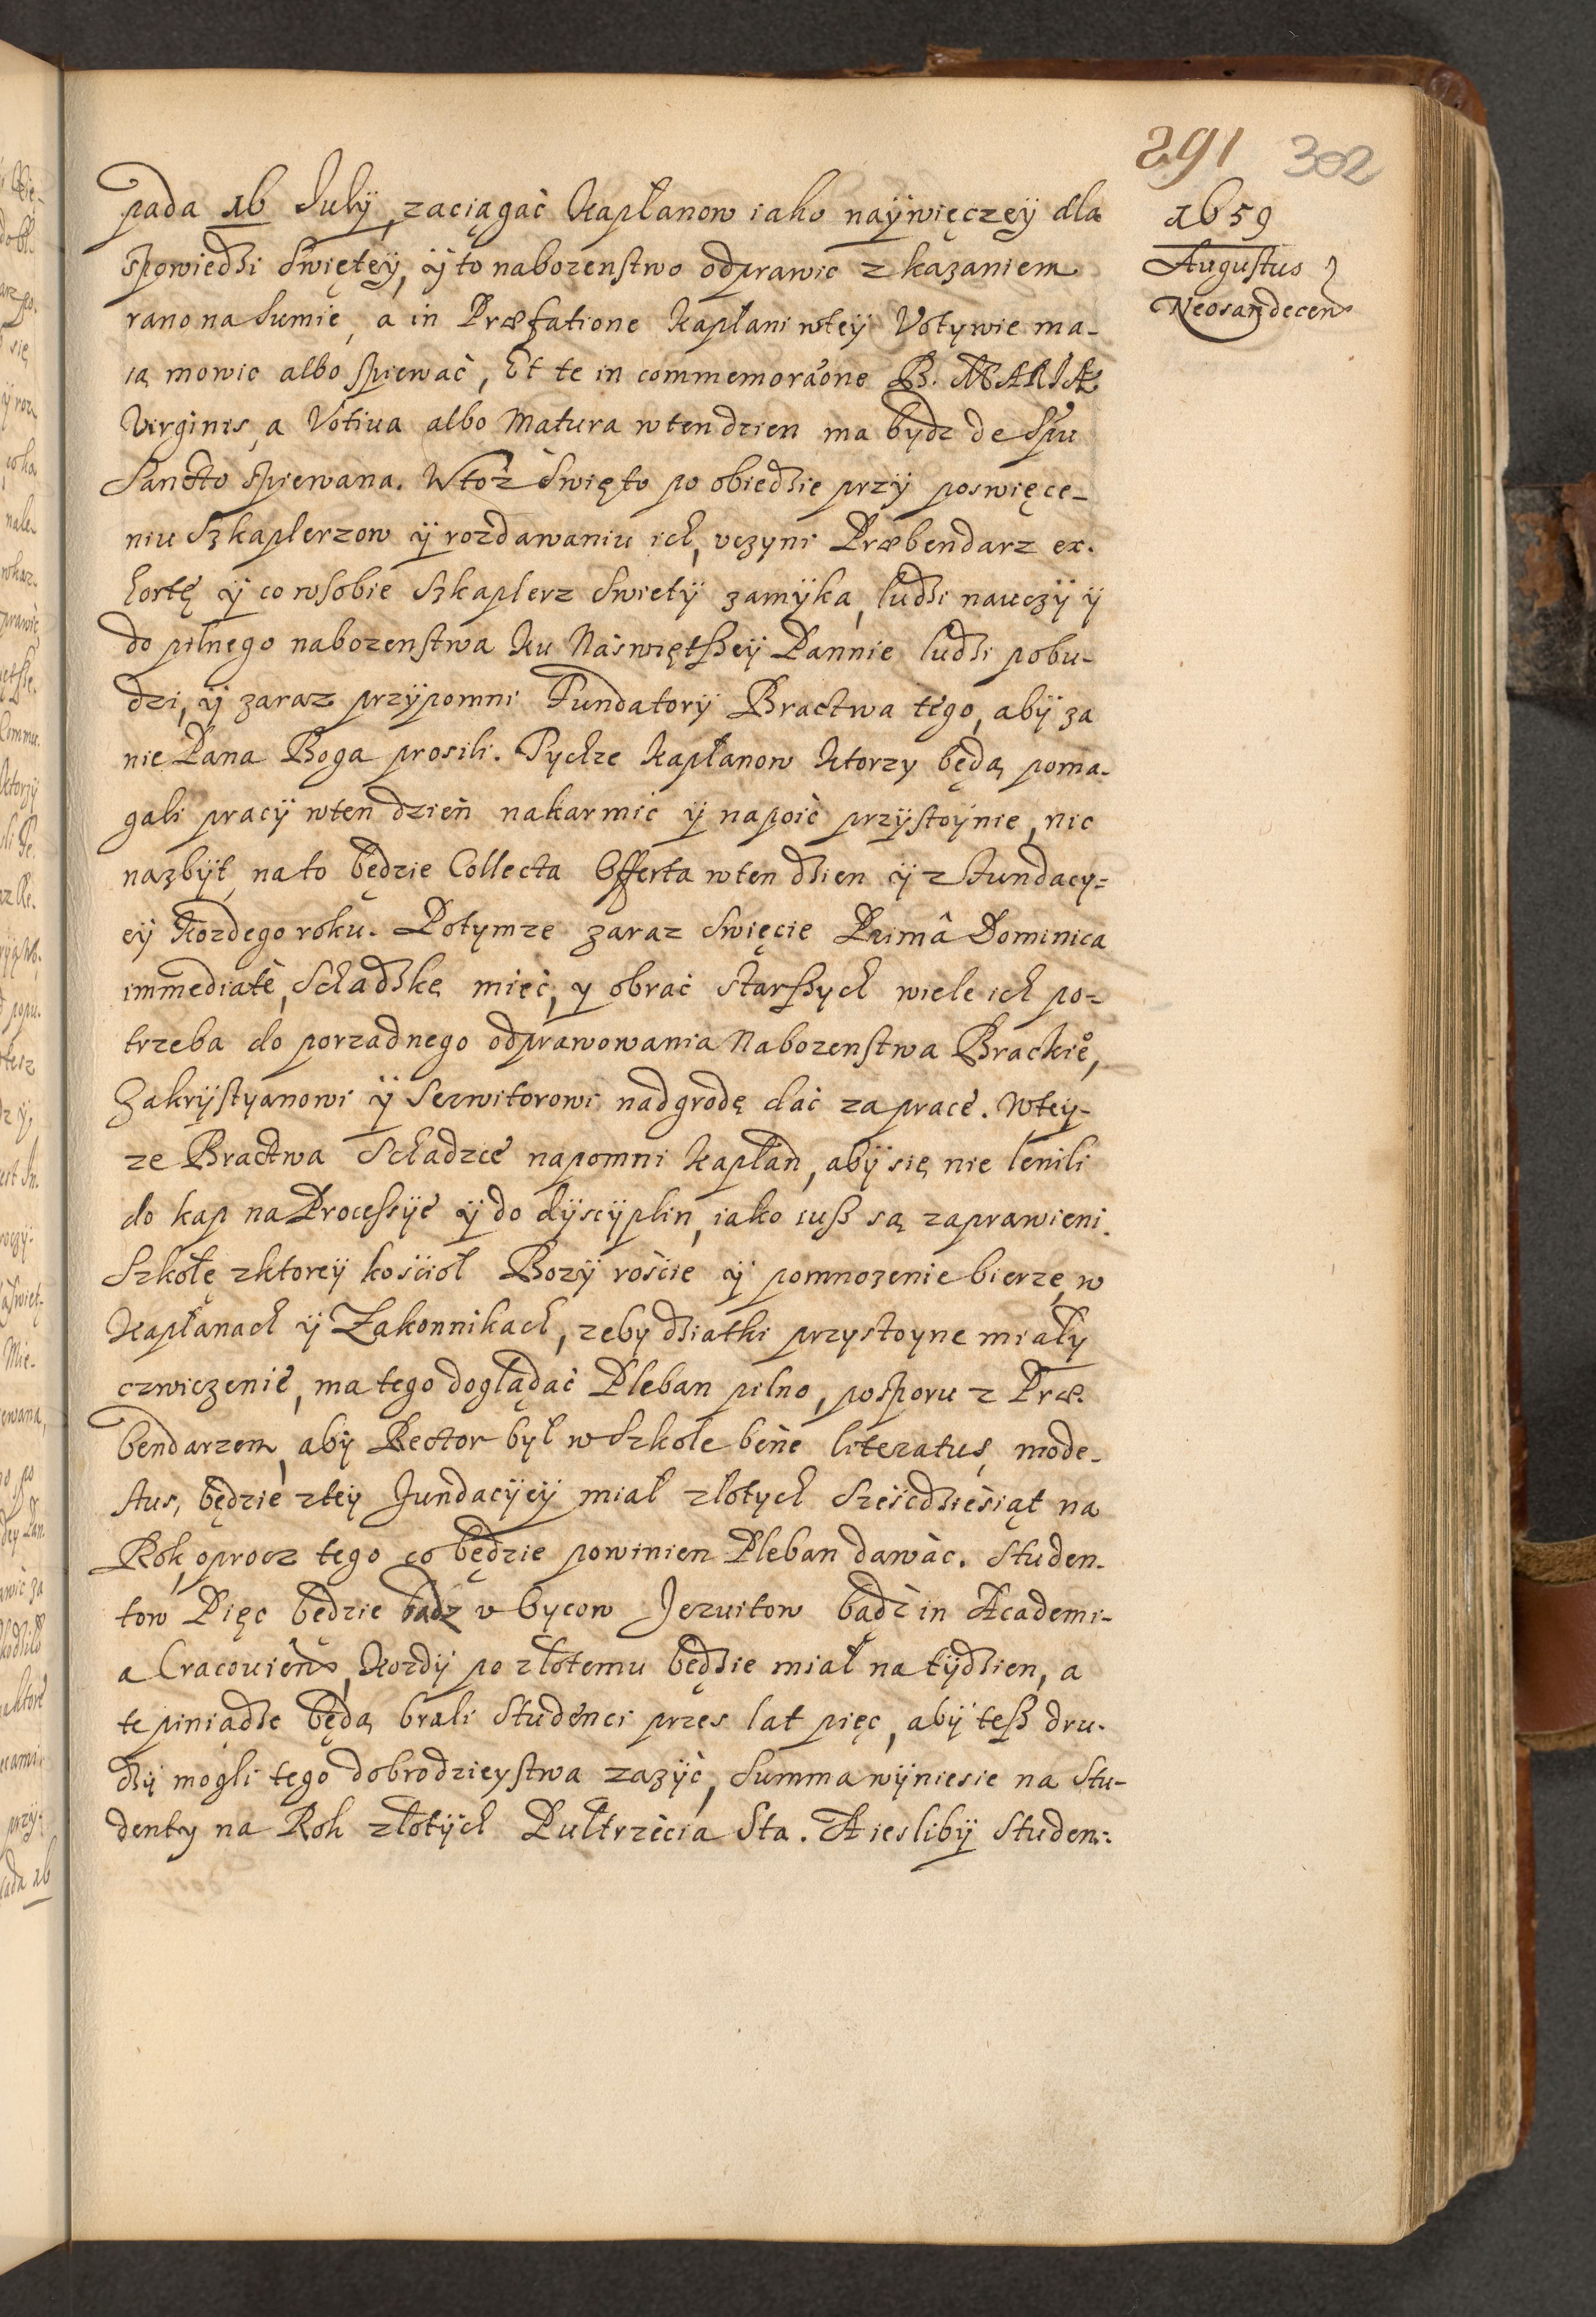 291 302
1659
Augustus
Neosandecen
pada 16 Julÿ, zaciągać Kapłanow iako naÿwięczeÿ dla
spowiedzi Swięteÿ, ÿ to nabozenstwo odprawic z kazaniem
rano na Sumie, a in Præfatione Kapłani wteÿ Votywie ma-
ią mowic albo spiewać, Et te in commemoraōne B. MARIÆ
Virginis, a Votiua albo Matura wten dzien ma bydz de Spu
Sancto spiewana. Wtoż Swięto po obiedzie przÿ poswięce-
niu Szkaplerzow ÿ rozdawaniu ich, vczyni Præbendarz ex-
hortę ÿ co wsobie Szkaplerz Swietÿ zamÿka, ludzi nauczÿ ÿ
do pilnego nabozenstwa Ku Naswiętszeÿ Pannie ludzi pobu-
dzi, ÿ zaraz przÿpomni Fundatorÿ Bractwa tego, abÿ za
nie Pana Boga prosili. Tychze Kapłanow Ktorzy będą poma-
gali pracÿ wten dzień nakarmić ÿ napoić przÿstoÿnie, nic
nazbÿt, na to będzie Collecta Offerta wten dzien ÿ z Fundacy=
eÿ Kozdego roku. Potymze zaraz Swięcie Primâ Dominica
immediatè, Schadzkę mieć, y obrać starszych wiele ich po-
trzeba do porzadnego odprawowania Nabozenstwa Brackie°,
Zakrÿstyanowi ÿ Serwitorowi nadgrodę dać za prace. Wtey-
ze Bractwa Schadzce napomni Kapłan, abÿ się nie lenili
do kap na Processÿe ÿ do dÿscÿplin, iako iusz są zaprawieni.
Szkołę zktoreÿ kościoł Bozÿ roście ÿ pomnozenie bierze, w
Kapłanach ÿ Zakonnikach, zeby dziatki przystoyne miały
czwiczenie, ma tego doglądać Pleban pilno, posporu z Præ-
bendarzem, abÿ Rector był w Szkole bene literatus, mode-
stus, będzie zteÿ Fundacÿeÿ miał złotych Sześćdziesiąt na
Rok, oprocz tego co będzie powinien Pleban dawać. Studen-
tow Pięc będzie badz v Oycow Jezuitow bądź in Academi-
a Cracouien, Kozdÿ po złotemu będzie miał na tÿdzien, a
te piniadze będą brali Studenci przes lat pięc, abÿ tesz dru-
dzÿ mogli tego dobrodzieystwa zazÿć, Summa wÿniesie na Stu-
denty na Rok złotÿch Pułtrzecia Sta. A iesliby Studen=